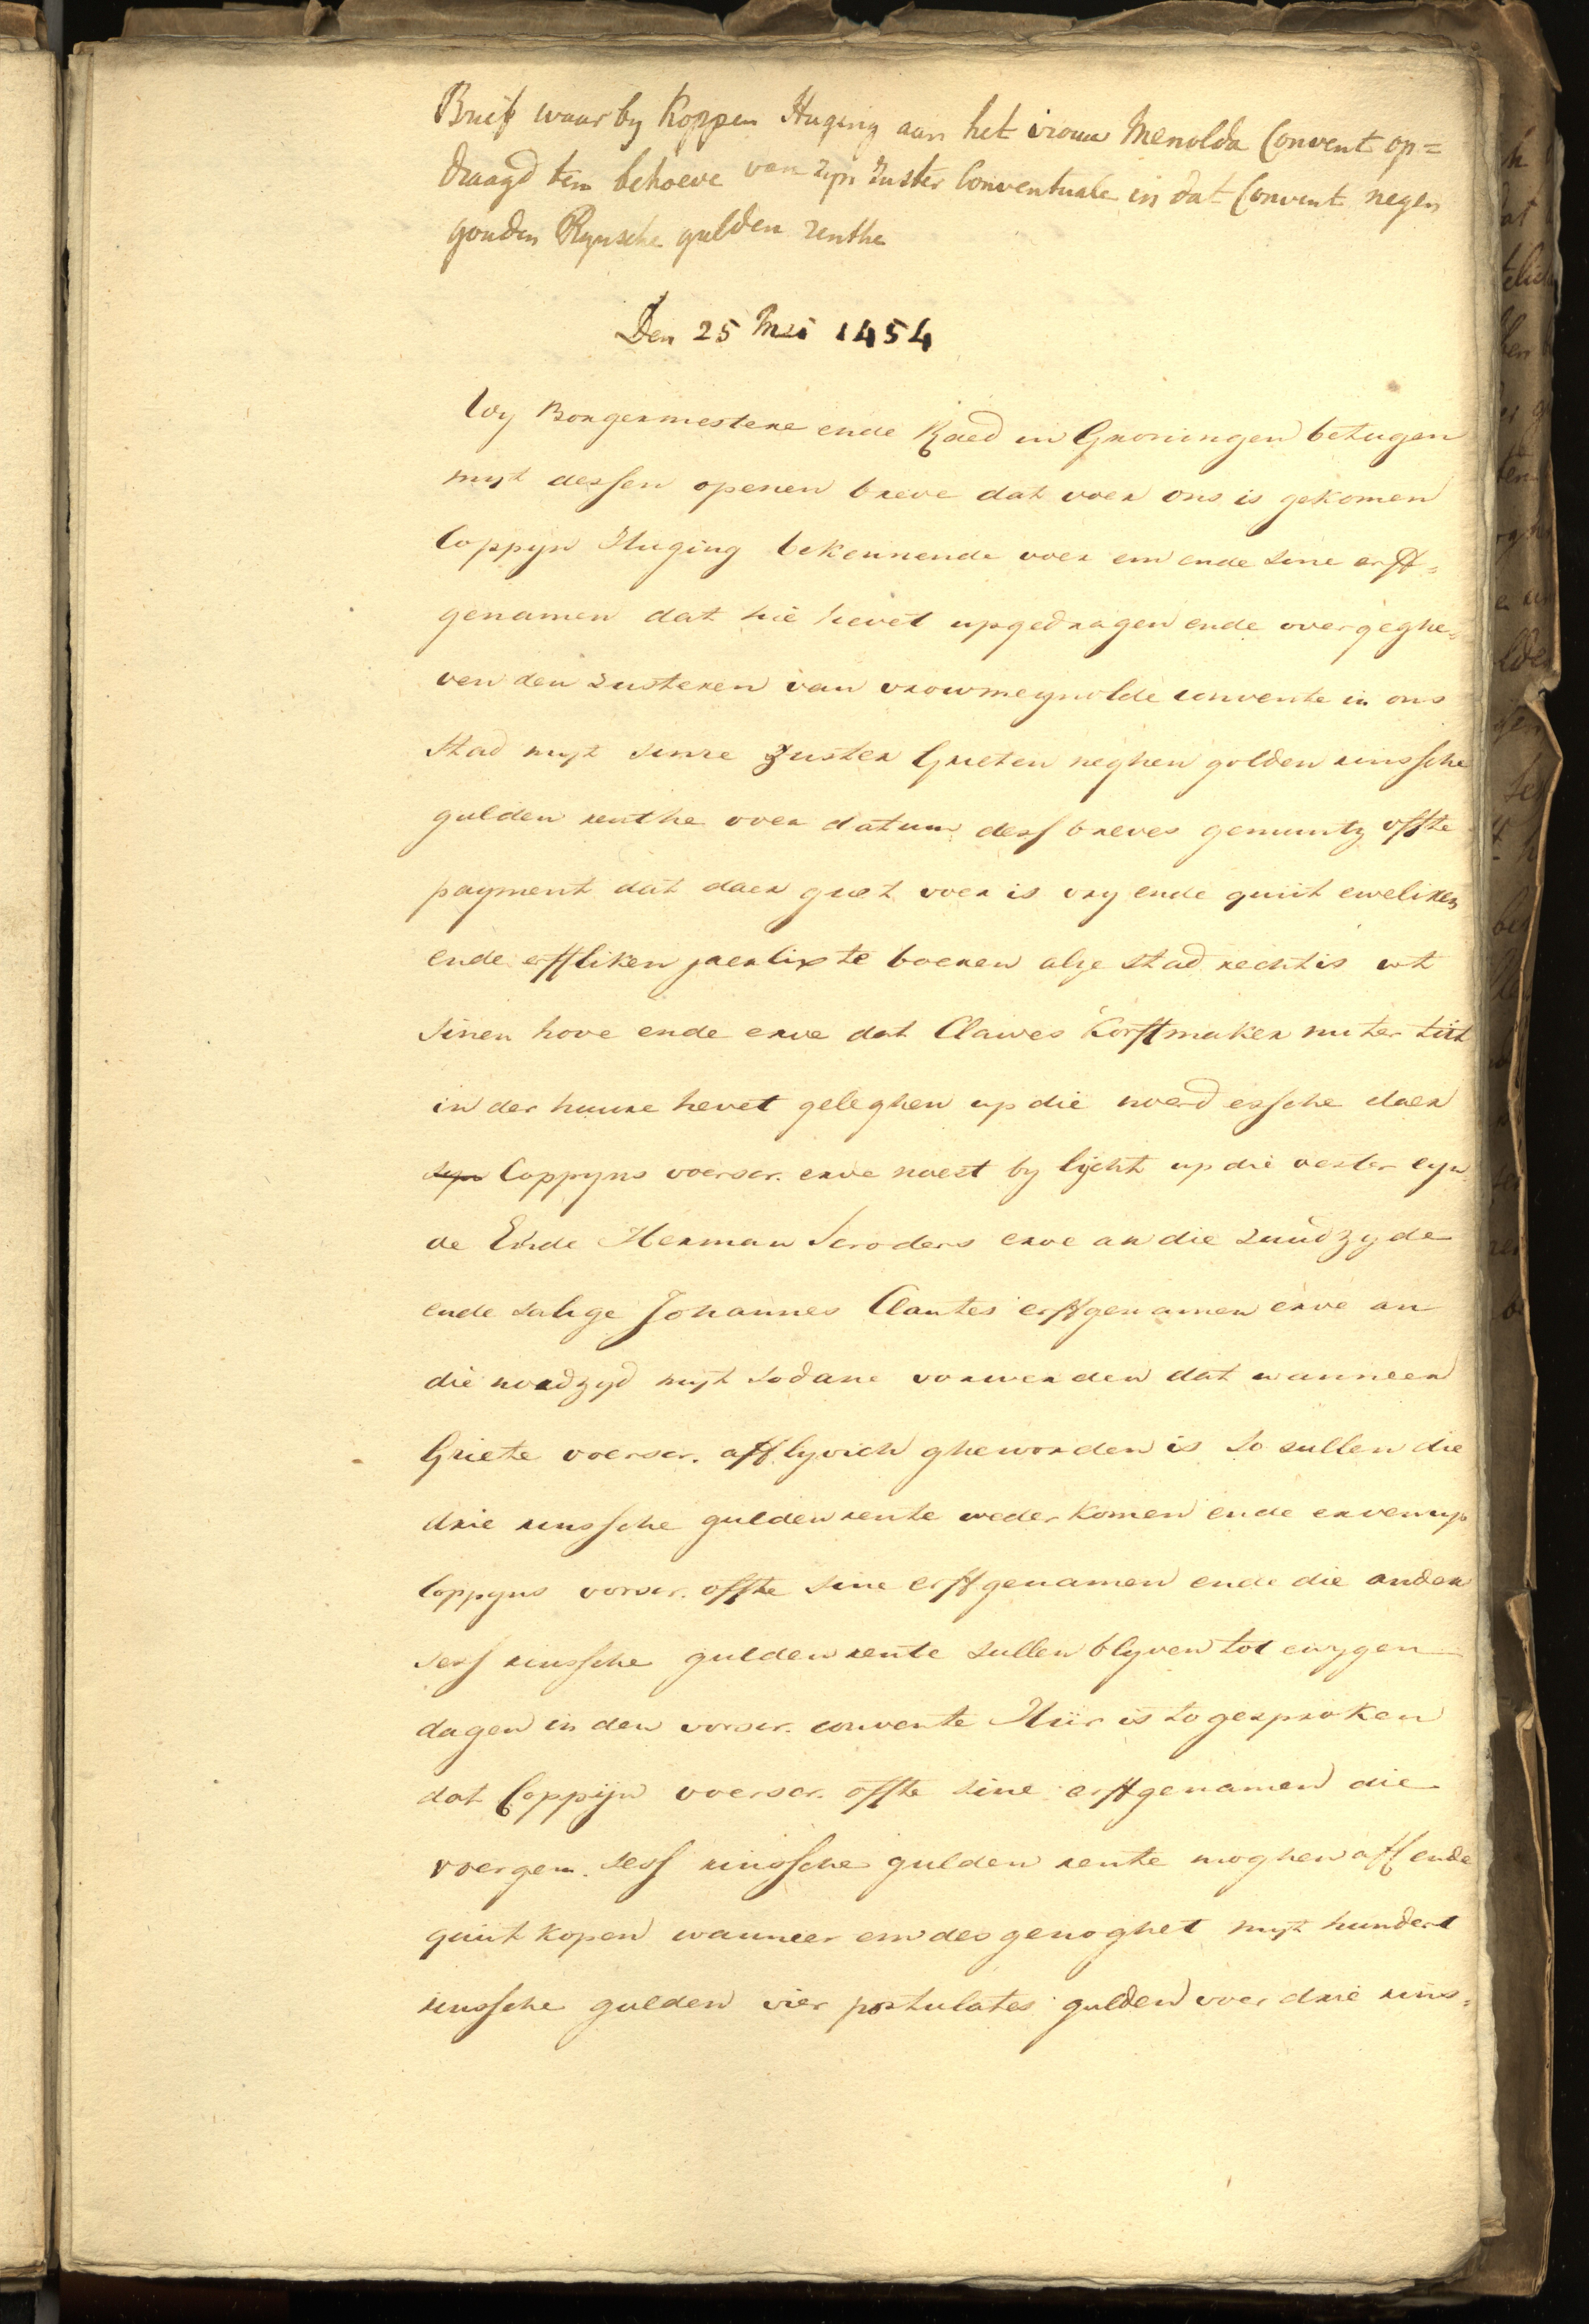 Brief waar by Koppen Huging aan het vrouw Menolda Convent op=
draagd ten behoeve van zijn Zuster Conventuale in dat Convent negen
gouden Rynsche gulden renthe
Den 25 Mei 1454
Wy Borgermestere ende Raed in Groningen betugen
myt dessen openen breve dat voer ons is gekomen
Coppyn Huging bekennende voer em ende sine erff=
genamen dat hie hevet upgedragen ende overgeghe=
ven den zusteren van vrowmeynolde convente in ons
stad myt sinre zuster Grieten neghen golden rinssche
gulden renthe over datum dess breves gemuntz offte
payment dat daer guet voer is vry ende quiit eweliken
ende erffliken jaerlix te boeren alse stad recht is ut
sinen hove ende erve dat Clawes Korffmaker nu ter tiit
in der huure hevet geleghen up die noerd essche daer
syn Coppyns voerscr. erve naest by lycht up die oester eyn
de Ende Herman Scroders erve an die zuudzyde
ende salige Johannes Clantes erffgenamen erve an
die nordzyd myt sodane vorwerden dat wanneer
Griete voerscr. afflyvich gheworden is so sullen die
drie rinssche gulden rente weder komen ende erven up
Coppyns vorscr. offte sine erffgenamen ende die ander
sess rinssche gulden rente sullen blyven tot ewygen
dagen in den vorscr. convente Hiir is to gesproken
dat Coppijn voerscr. offte sine erffgenamen die
voergem. sess rinssche gulden rente moghen aff ende
quiit kopen wanneer em des genoghet myt hundert
rinssche gulden vier postulates gulden voer drie rins=